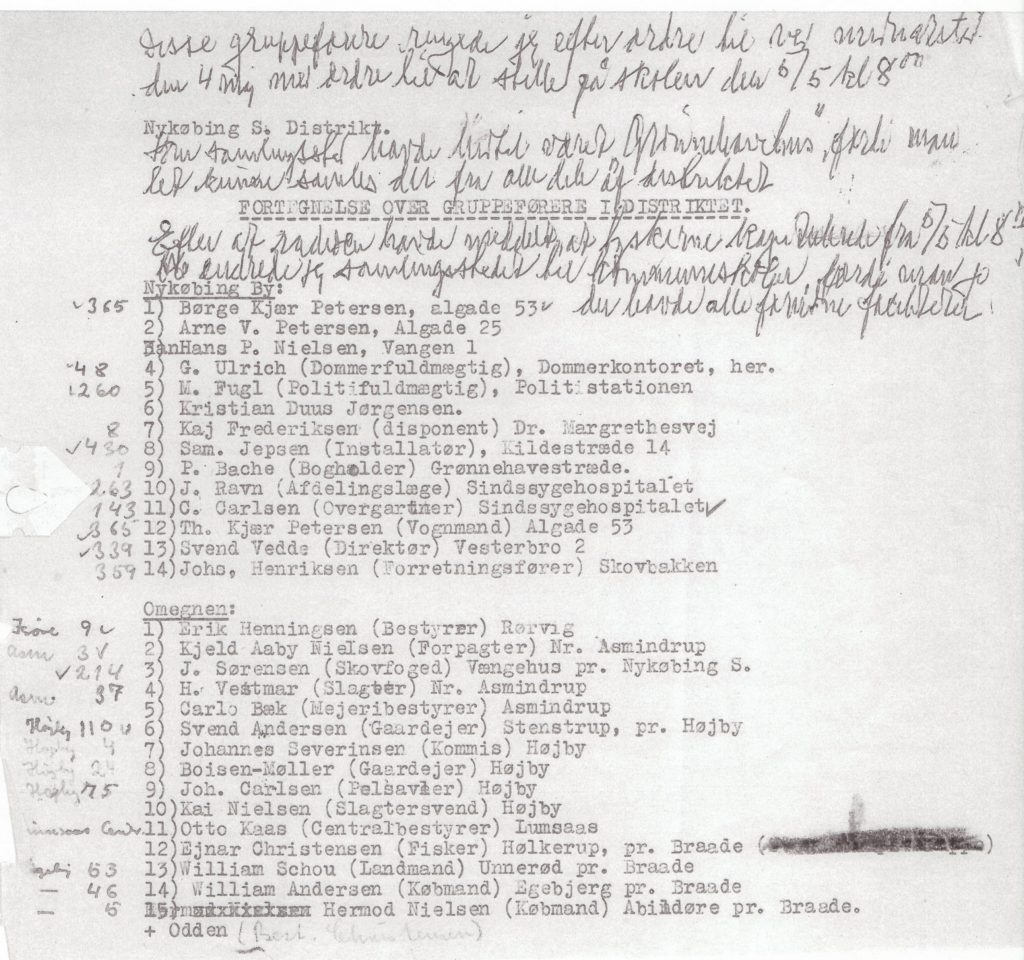 Disse gruppeførere ringede jeg efter ordre til ved
den 4 maj med ordre til at stille på skolen den 5/5 kl 8 00
Nykøbing S. Distrikt.
Som samlingssted havde hidtil været "Grønnehavehus", fordi man
let kunne samles der fra alle dele af distriktet
FORTEGNELSE OVER GRUPPEFØRERE I DISTRIKTET.
Efter at radioen havde meddelt at tyskerne fra 5/5 kl 8
ændrede jeg samlingsstedet til kommuneskolen, fordi man jo
Nykøbing By:
der havde alle
✓365 1) Børge Kjær Petersen, algade 53✓
2) Arne V. Petersen, Algade 25
3) Hans P. Nielsen, Vangen 1
48 4) G. Ulrich (Dommerfuldmægtig), Dommerkontoret, her.
260 5) M. Fugl (Politifuldmægtig), Politistationen
6) Kristian Duus Jørgensen.
8 7) Kaj Frederiksen (disponent) Dr. Margrethesvej
✓430 8) Sam. Jepsen (Installatør), Kildestræde 14
1 9) P. Bache (Bogholder) Grønnehavestræde.
263 10)J. Ravn (Afdelingslæge) Sindssygehospitalet
143 11)C. Carlsen (Overgartner) Sindssygehospitalet✓
✓365 12)Th. Kjær Petersen (Vognmand) Algade 53
✓339 13)Svend Vedde (Direktør) Vesterbro 2
359 14)Johs, Henriksen (Forretningsfører) Skovbakken
Omegnen:
9 ✓ 1) Erik Henningsen (Bestyrer) Rørvig
Asm 3 ✓ 2) Kjeld Aaby Nielsen (Forpagter) Nr. Asmindrup
✓214 3) J. Sørensen (Skovfoged) Vængehus pr. Nykøbing S.
Asm 37 4) H. Vestmar (Slagter) Nr. Asmindrup
5) Carlo Bæk (Mejeribestyrer) Asmindrup
Højby 110 ✓ 6) Svend Andersen (Gaardejer) Stenstrup, pr. Højby
Højby 4 7) Johannes Severinsen (Kommis) Højby
Højby 24 8) Boisen-Møller (Gaardejer) Højby
Højby 75 9) Joh. Carlsen (Pelsavler) Højby
10)Kai Nielsen (Slagtersvend) Højby
Lumsaas Centr. 11)Otto Kaas (Centralbestyrer) Lumsaas
12)Ejnar Christensen (Fisker) Hølkerup, pr. Braade ( )
63 13)William Schou (Landmand) Unnerød pr. Braade
— 46 14) William Andersen (Købmand) Egebjerg pr. Braade
— 5 15) Hermod Nielsen (Købmand) Abildøre pr. Braade.
+ Odden (Best. Christensen)